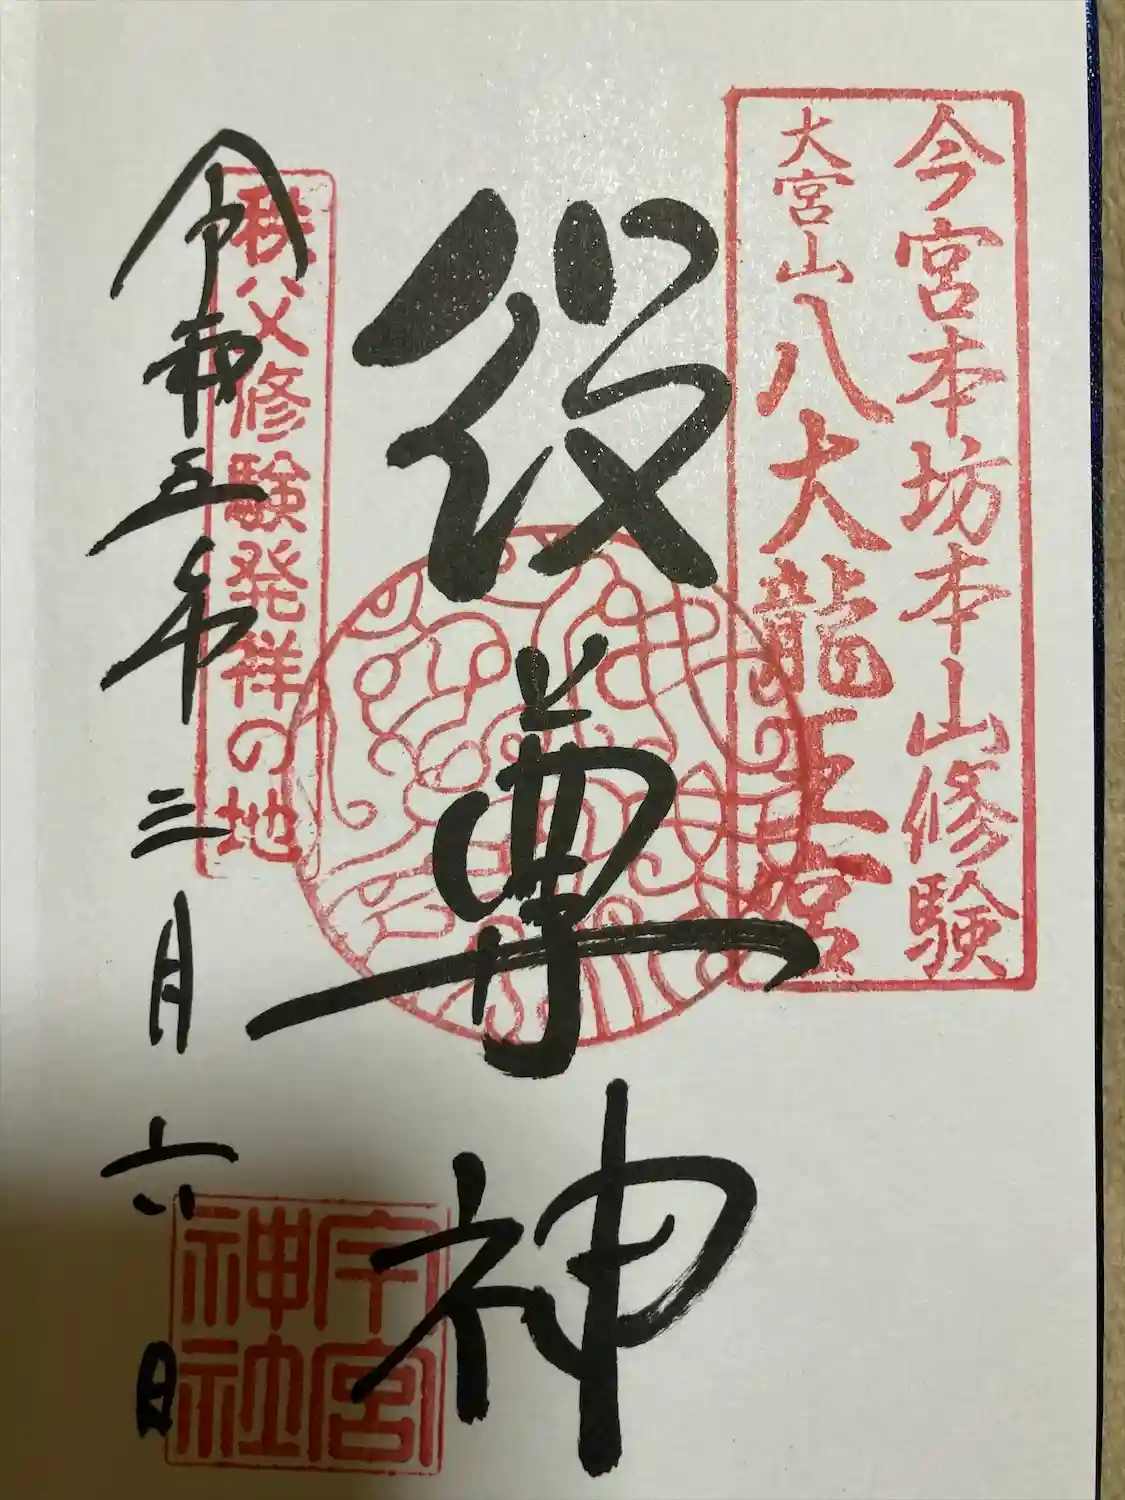 今宮本坊本山修験
大宮山八大龍王宮
役尊神
秩父修験発祥の地
令和五年三月六日
今宮
神社